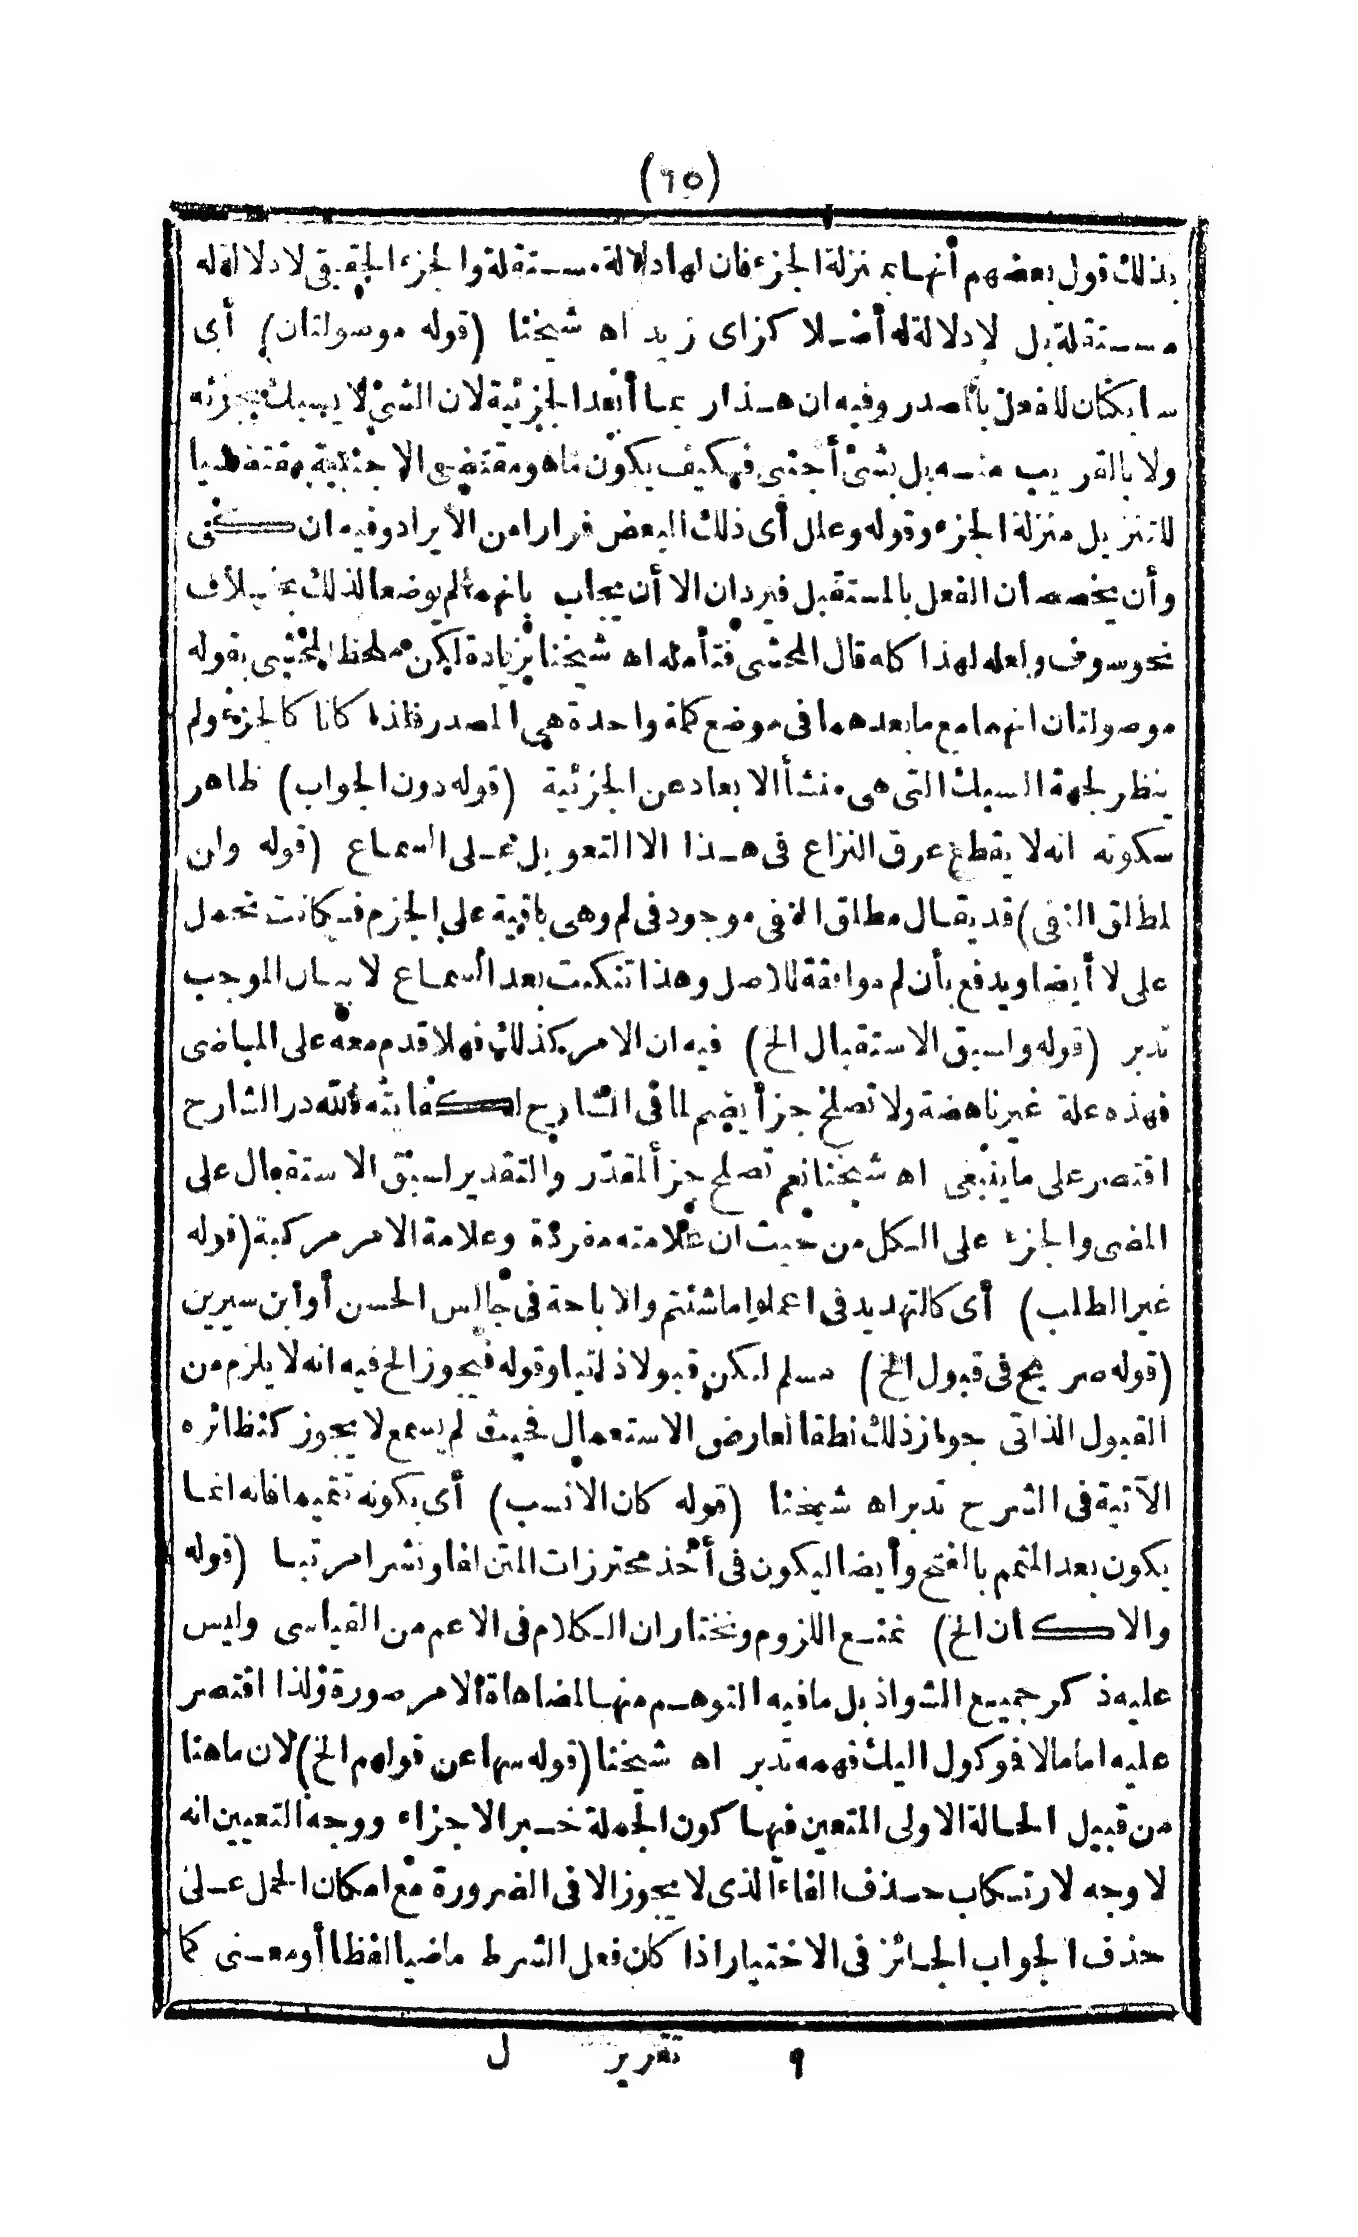 (٦٥)
بذلك قول بعضهم أنهما بمنزلة الجزء فان لهما دلالة مستقلة والجزء الحقيقى لا دلالة له
مستقلة بل لا دلالة له أصلا كزاى زيد اه شيخنا (قوله موسولتان) أى
سابكتان للفعل بالمصدر وفيه ان هذا ربما أبعد الجزئية لان الشئ لا يسبك بجزئه
ولا بالقريب منه بل بشئ أجنبى فكيف يكون ماهو مقتضى الاجنبية مقتضيا
للتنزيل منزلة الجزء وقوله وعلل أى ذلك البعض فرارا من الايراد وفيه ان كفى
وأن يخصصان الفعل بالمستقبل فيردان الا أن يجاب بانهما لم يوضعا لذلك بخلاف
نحو سوف ولعله لهذا كله قال المحشى فتأمله اه شيخنا بزيادة لكن ملحظ المحشى بقوله
موصولتان انهما مع ما بعدهما فى موضع كلمة واحدة هى المصدر فلذا كانا كالجزء ولم
ينظر لجهة السبك التى هى منشأ الابعاد عن الجزئية (قوله دون الجواب) ظاهر
سكوته انه لا يقطع عرق النزاع فى هذا الا التعويل على السماع (قوله وان
لمطلق النفى) قد يقال مطلق النفى موجود فى لم وهى باقية على الجزم فكانت تحمل
على لا أيضا ويدفع بأن لم موافقة للاصل وهذا تنكيت بعد السماع لا بيان الموجب
تدبر (قوله واسبق الاستقبال الخ) فيه ان الامر كذلك فهلا قدم معه على الماضى
فهذه علة غير ناهضة ولا تصلح جزأ يضم لما فى الشارح لكفايته فلله در الشارح
اقتصر على ما ينبغى اه شيخنا نعم تصلح جزأ لمقدر والتقدير لسبق الاستقبال على
المضى والجزء على الكل من حيث ان علامته مفردة وعلامة الامر مركبة (قوله
غير الطلب) أى كالتهديد فى اعملوا ما شئتم والاباحة فى جالس الحسن أو ابن سيرين
(قوله صريح فى قبول الخ) مسلم لكن قبولا ذاتيا وقوله فيجوز الخ فيه انه لا يلزم من
القبول الذاتى جواز ذلك نطقا لعارض الاستعمال فحيث لم يسمع لا يجوز كنظائره
الآتية فى الشرح تدبر اه شيخنا (قوله كان الانسب) أى بكونه تتميما فانه انما
يكون بعد المتمم بالفتح وأيضا ليكون فى أخذ محترزات المتن لفا ونشرا مرتبا (قوله
والا كان الخ) نمنع اللزوم ونختار ان الكلام فى الاعم من القياسى وليس
عليه ذكر جميع الشواذ بل ما فيه التوهم منها لمضاهاة الامر صورة ولذا اقتصر
عليه اما مالا فموكول اليك فهمه تدبر اه شيخنا (قوله سها عن قولهم الخ) لان ما هنا
من قبيل الحالة الاولى المتعين فيها كون الجملة خبر الاجزاء ووجه التعيين انه
لا وجه لارتكاب حذف الفاء الذى لا يجوز الا فى الضرورة مع امكان الحمل على
حذف الجواب الجائز فى الاختيار اذا كان فعل الشرط ماضيا لفظا أو معنى كما
٩ تقرير ل